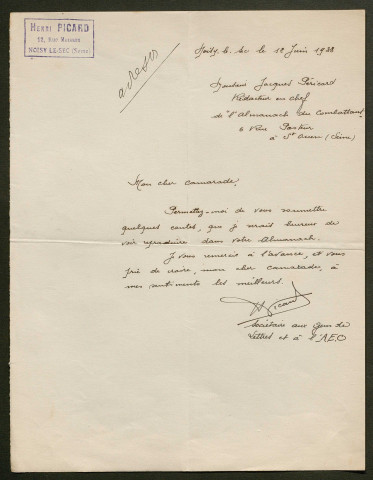 HENRI PICARD
12, Rue
NOISY-LE-SEC (Seine)
Noisy-le-Sec le 12 Juin 1938
Monsieur Jacques Péricard
Rédacteur en chef
de "l'Almanach du Combattant"
6 Rue Pasteur
à St Ouen (Seine)
Mon cher camarade,
Permettez-moi de vous soumettre
quelques contes, que je serais heureux de
voir reproduire dans votre Almanach.
Je vous remercie à l'avance, et vous
prie de croire, mon cher camarade, à
mes sentiments les meilleurs.
HPicard
Sociétaire aux Gens de
Lettres et à l'A.E.C